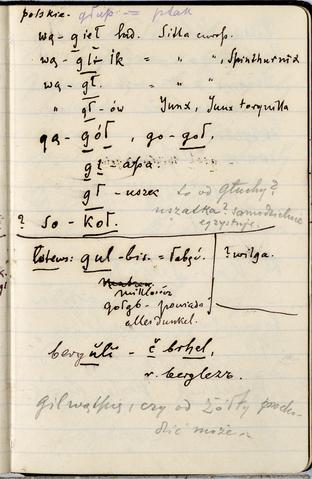 polskie. głup = ptak
wą-gieł Sitta europ.
wą-gl-ik = " ", Spinthurnix
wą-gł. " "
" gł-ów Junx, Junx torquilla
gą-gół, go-goł,
gł-uszek to od głuchy?
uszatka? samodzielnie
egzystuje.
? so-koł.
łotews: gul-bis = łabęź. ? wilga.
Miklosicz
gołąb - powiada
alles dunkel.
berguli - č brhel,
r. berglez.
czy od żółty pocho-
dzić może